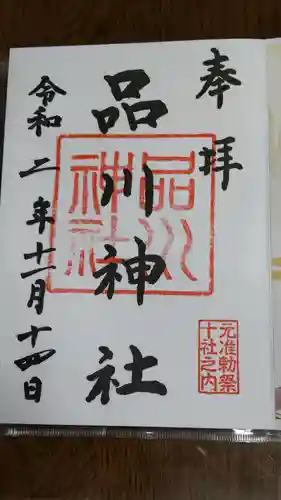 奉拝
品川神社
品川神社
元准勅祭
十社之内
令和二年十一月十四日